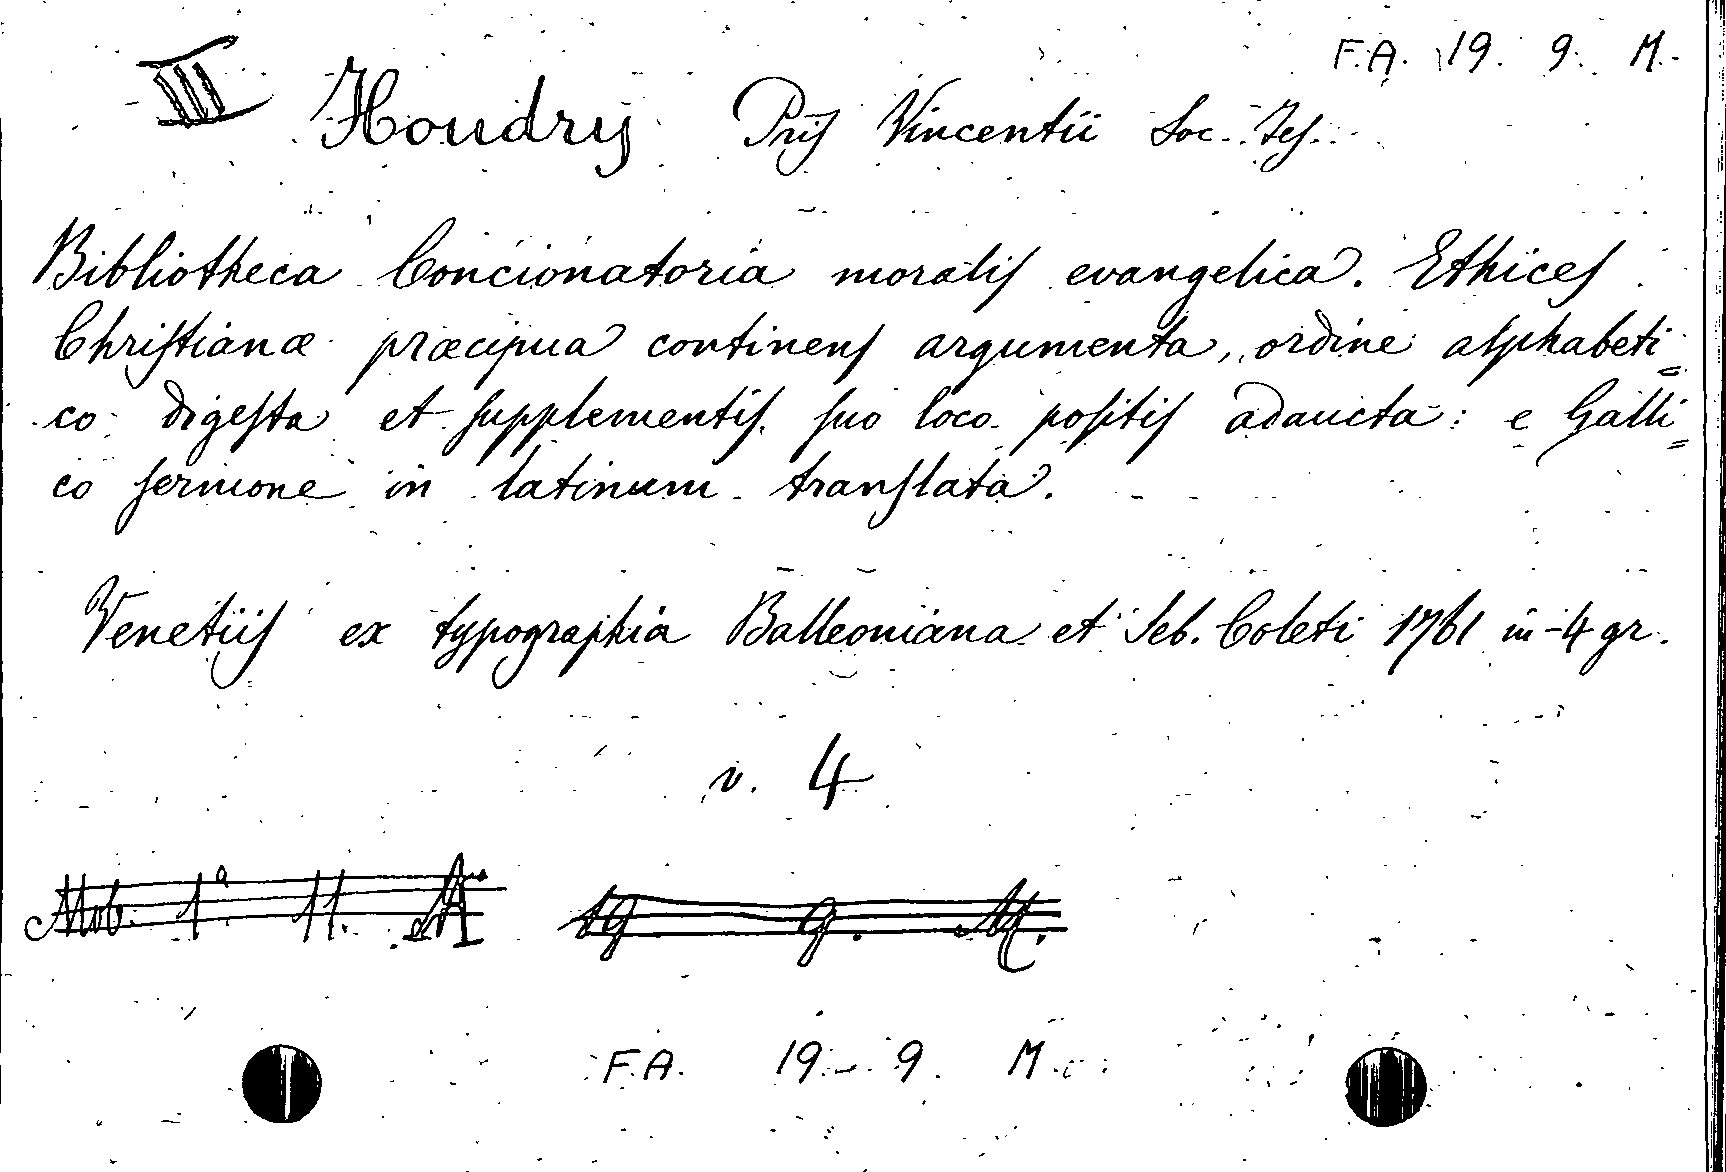 F.A. 19. 9. M.
III Houdry Pris Vincentii Soc. Jes.
Bibliotheca Concionatoria moralis evangelica. Ethices
Christianæ præcipua continens argumenta, ordine alphabeti=
co digesta et supplementis suo loco positis adaucta: e Galli=
co sermone in latinum translata.
Venetiis ex typographia Balleoniana et Seb. Coleti 1761 in-4 gr.
v. 4
Mob. 1ª 11. A 19 9. M.
F.A. 19 - 9. M.